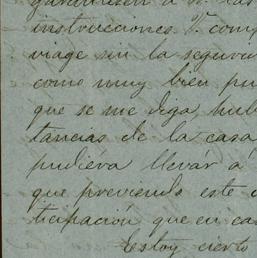 garantisen á V. las
instrucciones. V. comp
viage sin la seguri
como muy bien pu
que se me diga hub
tancias de la casa
pudiera llevár á
que previendo este c
ticipación que en ca
Estoy cierto